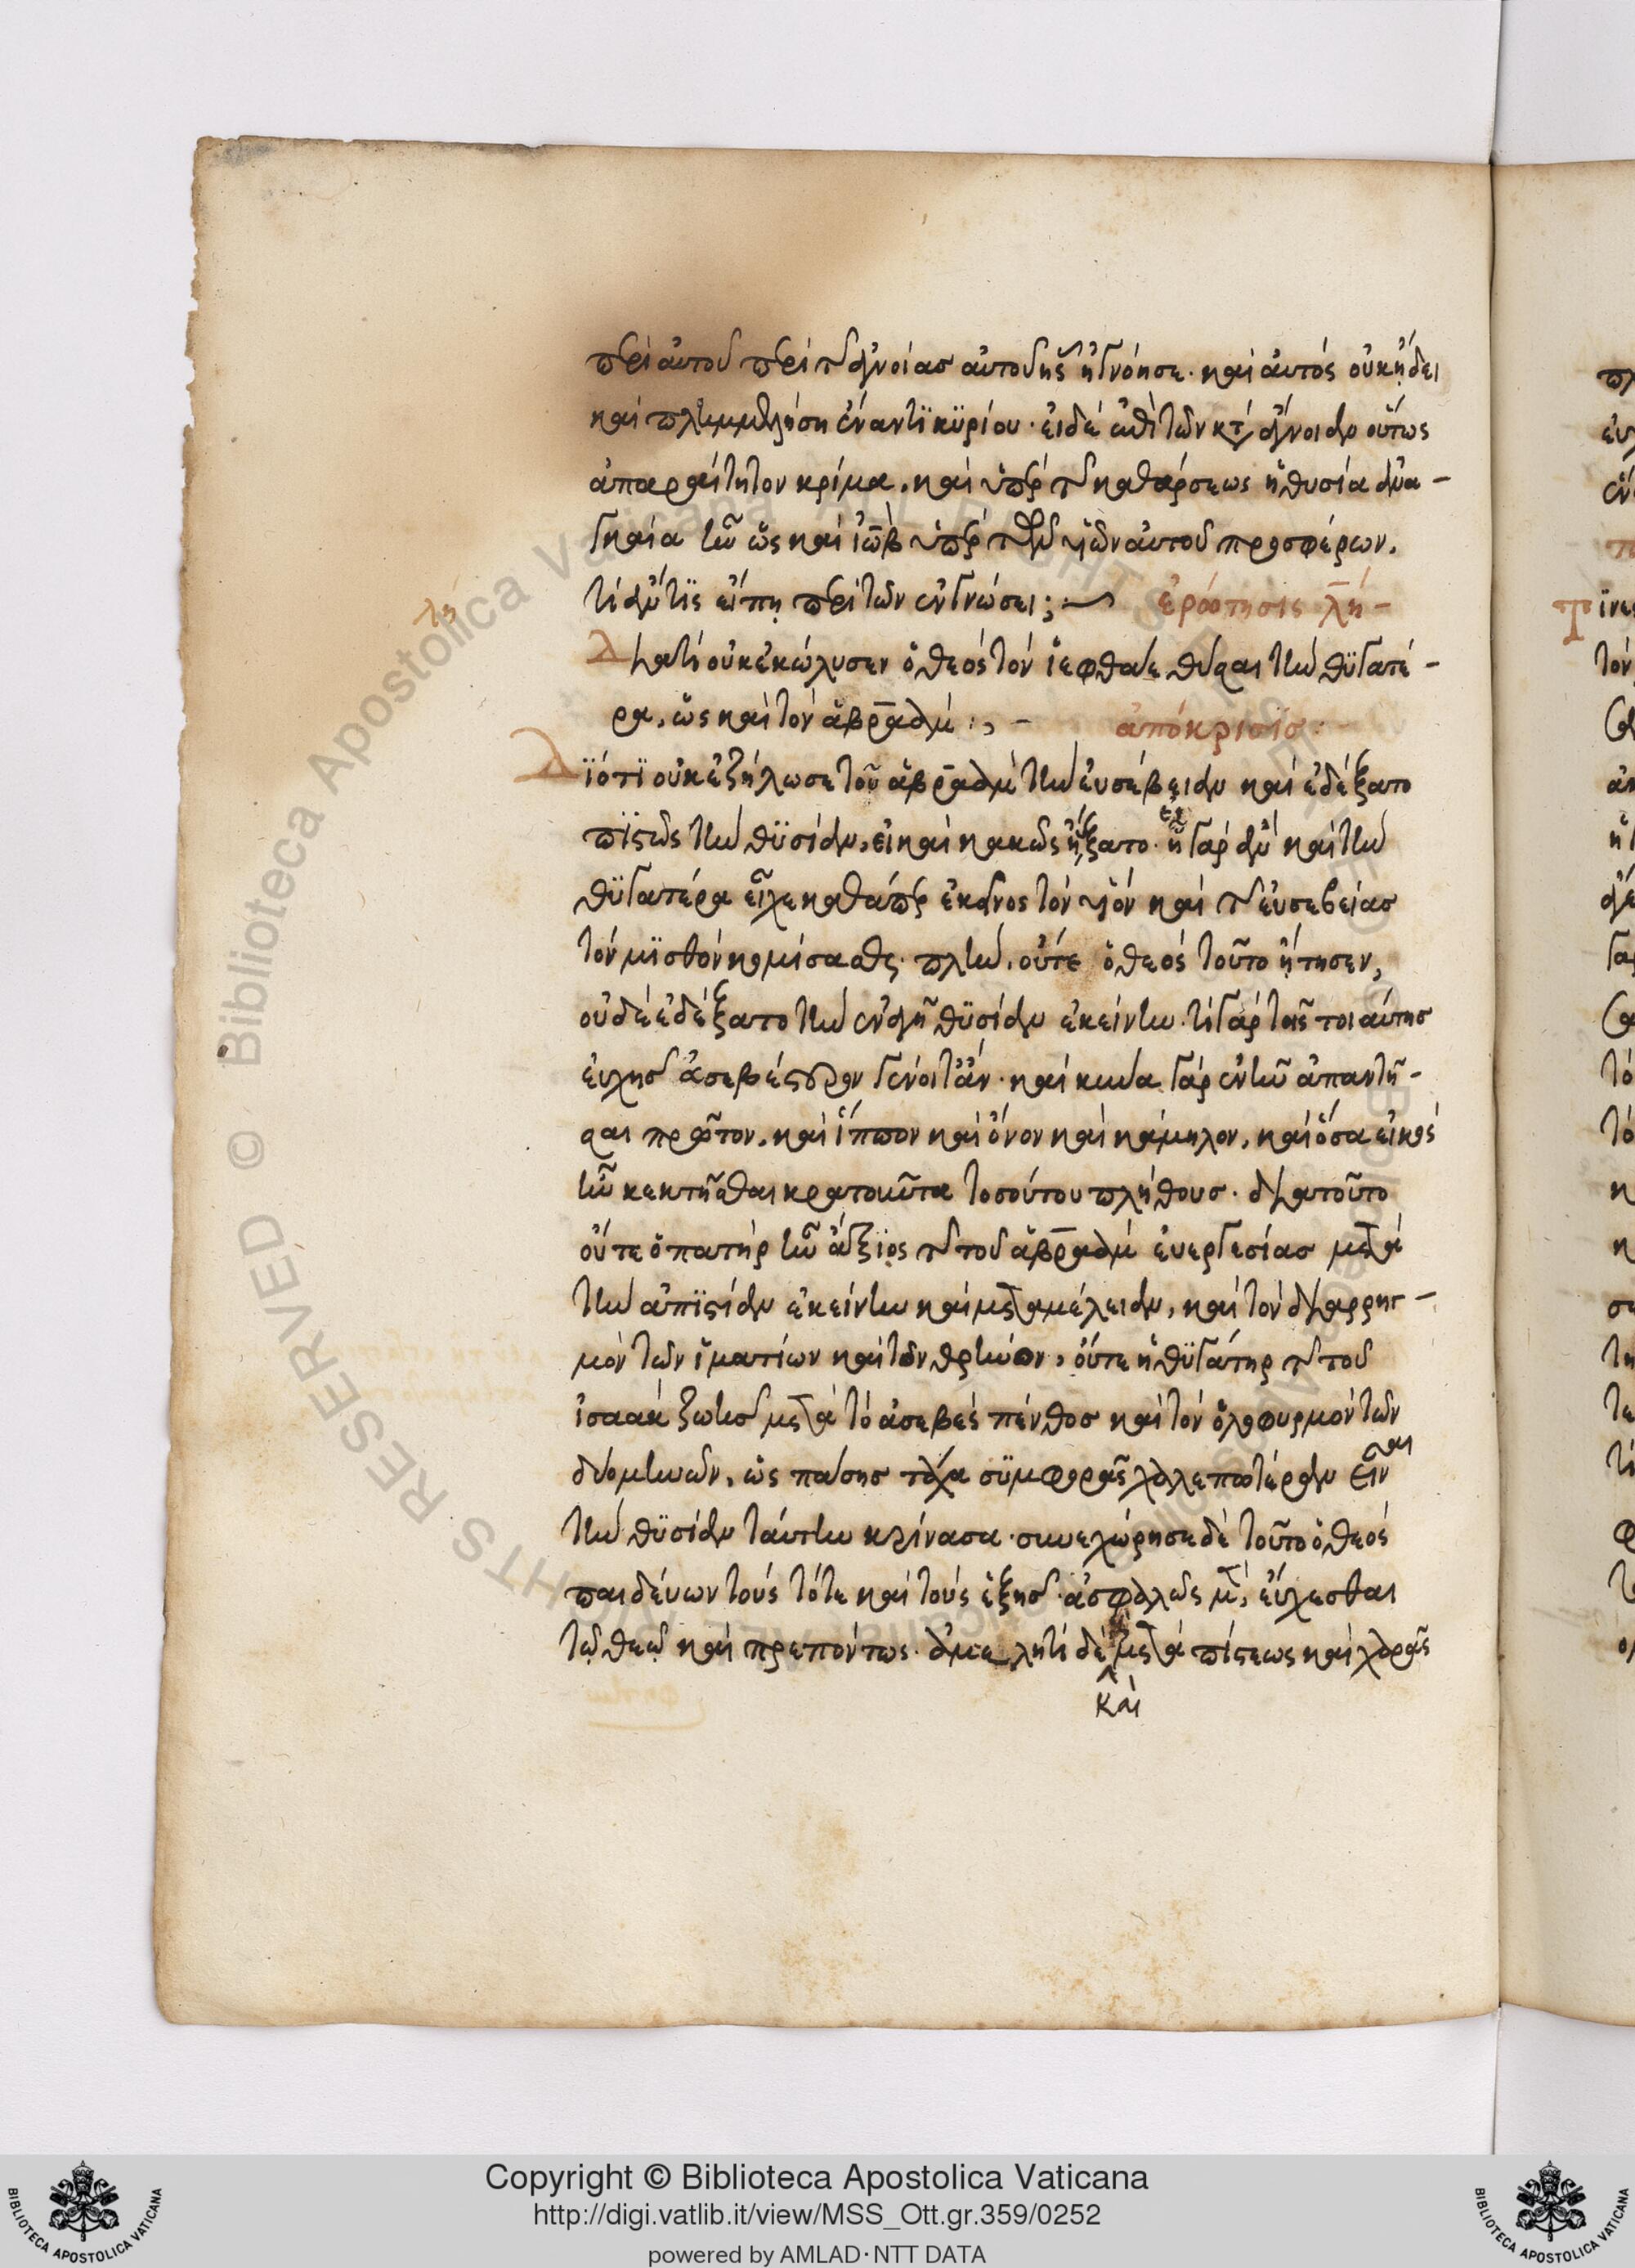 περὶ αὐτοῦ περὶ τῆς ἀγνοίας αὐτοῦ ἧς ἠγνόησε· καὶ αὐτός οὐκ ᾔδει
καὶ πλημμελήση ἔναντϊ κϋρίου· εἰ δέ ἐπὶ τῶν κατ ἄγνοιαν οὕτως
ἀπαραίτητον κρίμα, καὶ ὑπὲρ τῆς καθάρσεως ἡ θυσία ἀνα-
γκαία ἦν ὥς καὶ ἰὼβ ὑπὲρ τῶν υἱῶν αὐτοῦ προσφέρων,
τί ἄν τϊς εἴπῃ περὶ τῶν ἐν γνώσει;
ἐρώτησις λή-
λη
Διατί οὐκ ἐκώλυσεν ὁ θεός τόν ἰεφθαε θῦσαι τὴν θϋγατέ-
ρα, ὥς καὶ τόν ἀβραάμ:, -
ἀπόκρισις:
Δϊότϊ οὐκ ἐζήλωσε τοῦ ἀβραάμ τὴν εὐσέβειαν καὶ ἐδέξατο
πϊστῶς τὴν θϋσίαν, εἰ καὶ κακῶς ηὔξατο· ἦ γάρ ἄν καὶ τὴν
θϋγατέρα εἶχε καθάπερ ἐκεῖνος τόν υἱόν καὶ τῆς εὐσεβείας
τόν μϊσθόν κομίσασθαι· πλὴν, οὔτε ὁ θεός τοῦτο ᾔτησεν,
οὐδέ ἐδέξατο τὴν ἐναγῆ θϋσίαν ἐκείνην· τί γάρ τῆς τοιαύτης
εὐχῆς ἀσεβέστερον γένοιτ ἄν· καὶ κύνα γάρ ἐνῆν ἀπαντῆ-
σαι πρῶτον, καὶ ἵππον καὶ ὄνον καὶ κάμηλον, καὶ ὅσα εἰκός
ἦν κεκτῆσθαι κρατοῦντα τοσούτου πλήθους· διατοῦτο
οὔτε ὁ πατήρ ἦν ἄξϊος τῆς τοῦ ἀβραάμ εὐεργεσίας μετά
τὴν ἀπϊστίαν ἐκείνην καὶ μεταμέλειαν, καὶ τόν διαρρησ-
μόν τῶν ἱματίων καὶ τῶν θρήνων, οὔτε ἡ θϋγάτηρ τῆς τοῦ
ἰσαάκ ζωῆς μετά τό ἀσεβές πένθος καὶ τόν ὀλοφυρμόν τῶν
δύο μηνῶν, ὡς πάσης τάχα σϋμφορᾶς χαλεπωτέραν εἶναι
τὴν θϋσίαν ταύτην κρίνασα· συνεχώρησε δέ τοῦτο ὁ θεός
παιδεύων τούς τότε καὶ τούς ἑξῆς ἀσφαλῶς μετ, εὔχεσθαι
τῷ θεῷ καὶ πρεπόντως· ἀμελητί δέ μετά πίστεως καὶ χαρᾶς
καὶ
Copyright © Biblioteca Apostolica Vaticana
http://digi.vatlib.it/view/MSS_Ott.gr.359/0252
powered by AMLAD·NTT DATA